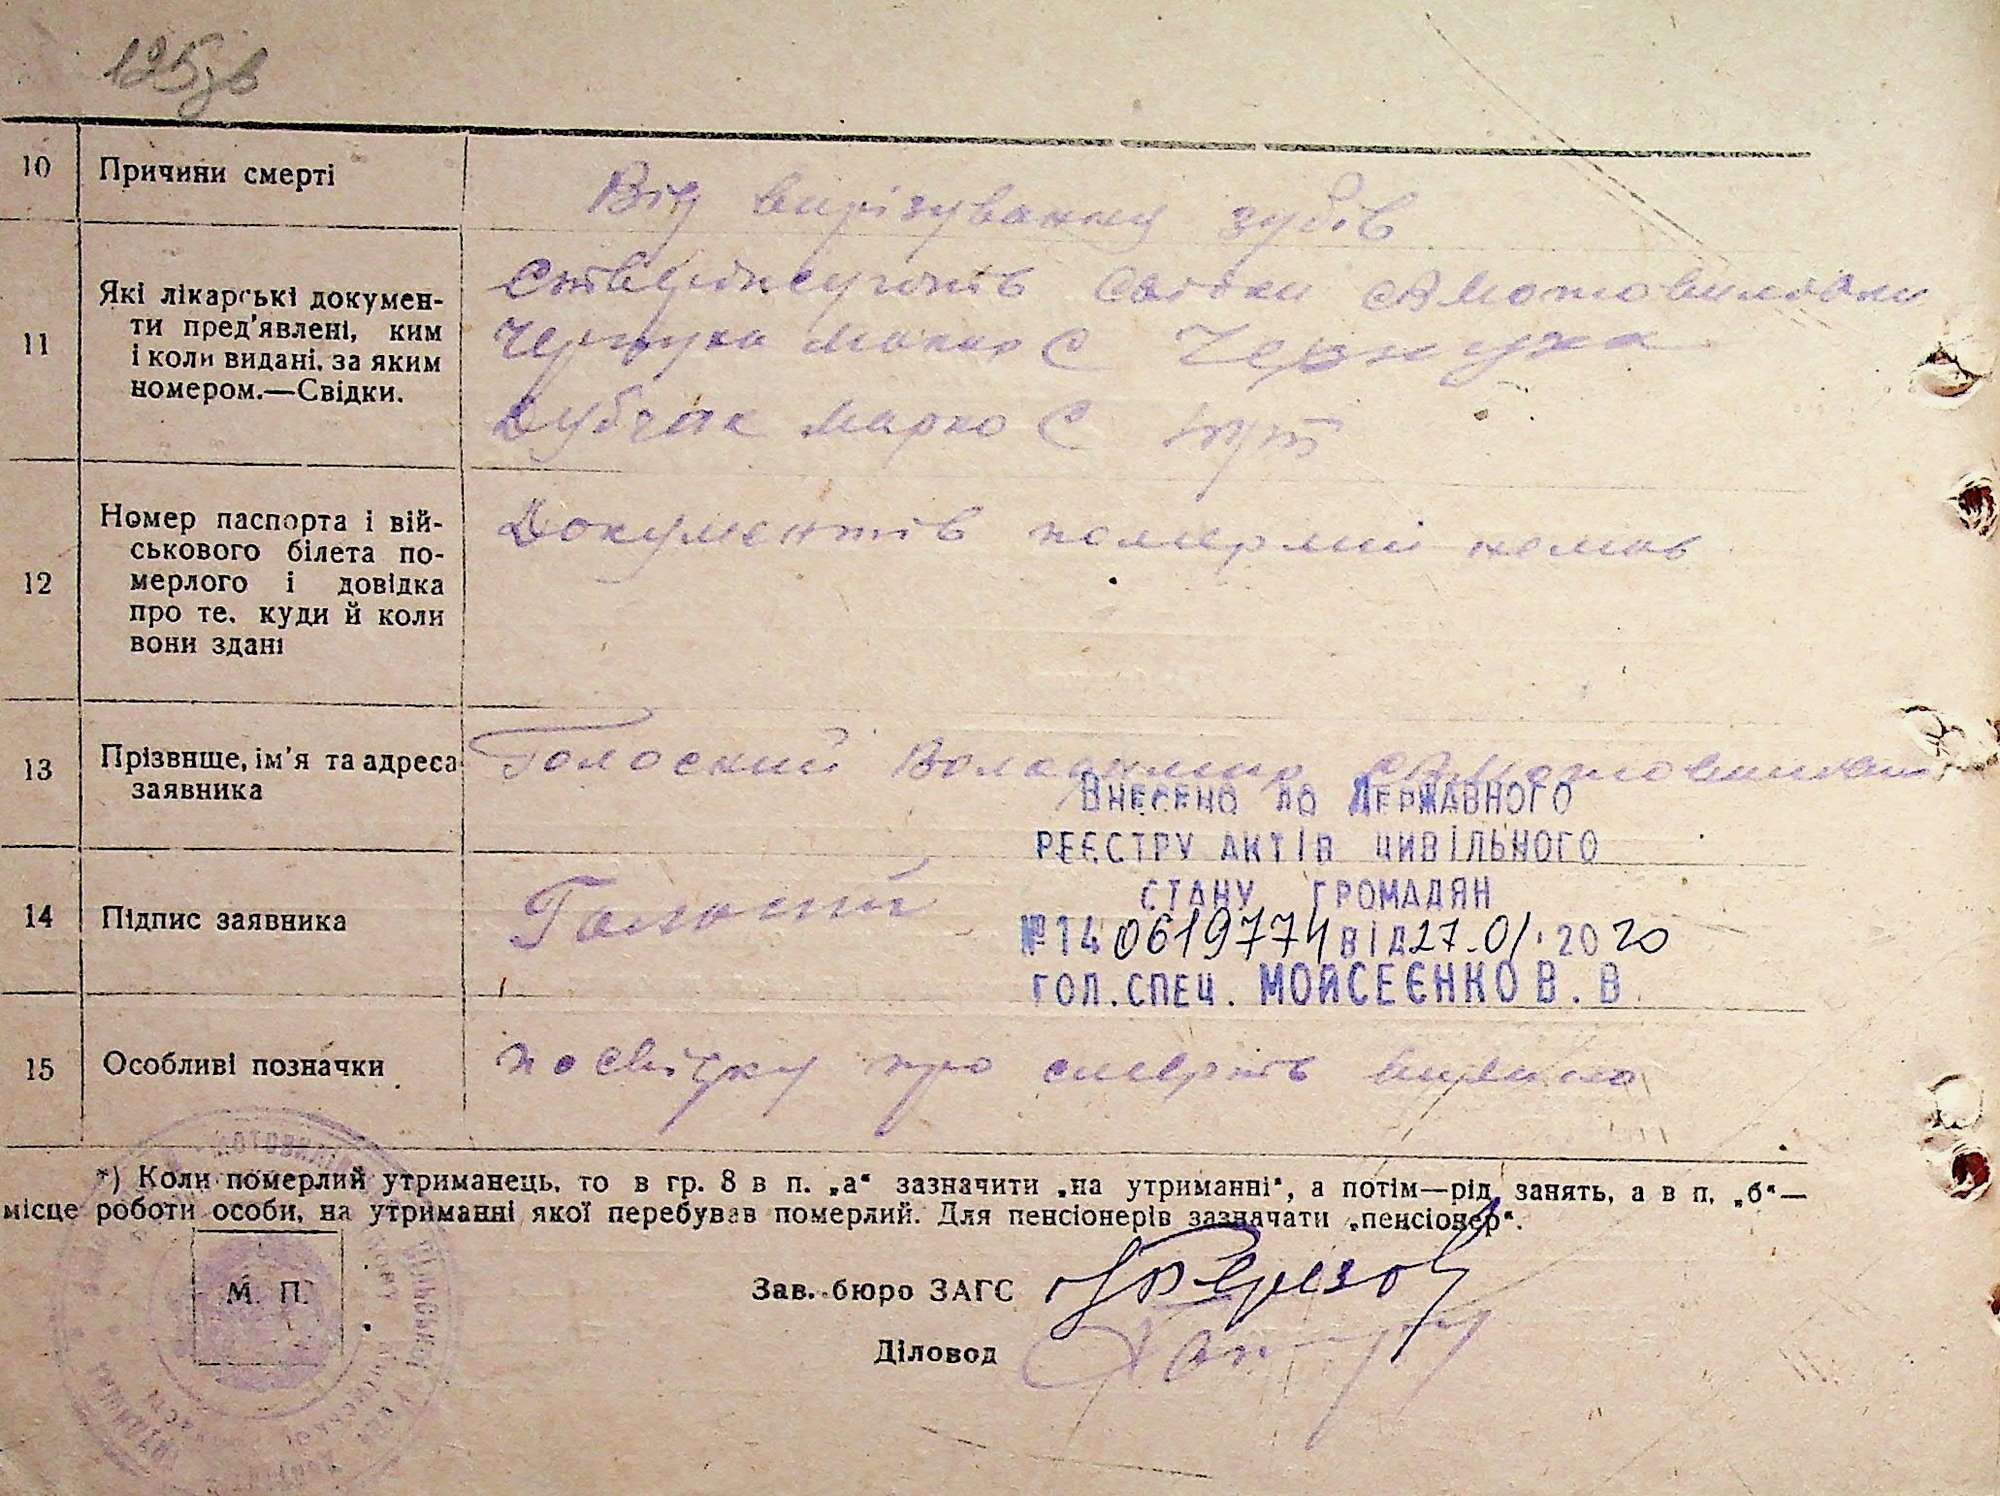 125зв
10 Причини смерті
Від вирізування зубів
11 Які лікарські докумен-
ти пред'явлені, ким
і коли видані, за яким
номером.—Свідки.
Стверджують свідки
Чернуха С Чернуха
Дубчак Марко С
12 Номер паспорта і вій-
ськового білета по-
мерлого і довідка
про те, куди й коли
вони здані
Документів померлий немав
13 Прізвище, ім'я та адреса
заявника
Голоский Володимир
Внесено до Державного
реєстру актів цивільного
стану громадян
№ 14 0619774 від 27.01.2020
гол. спец. Мойсеєнко В. В
14 Підпис заявника
Голоский
15 Особливі позначки
посвідку про смерть
*) Коли померлий утриманець, то в гр. 8 в п. „а“ зазначити „на утриманні“, а потім—рід занять, а в п. „б“—
місце роботи особи, на утриманні якої перебував померлий. Для пенсіонерів зазначати „пенсіонер“.
М. П.
Зав. бюро ЗАГС
Діловод